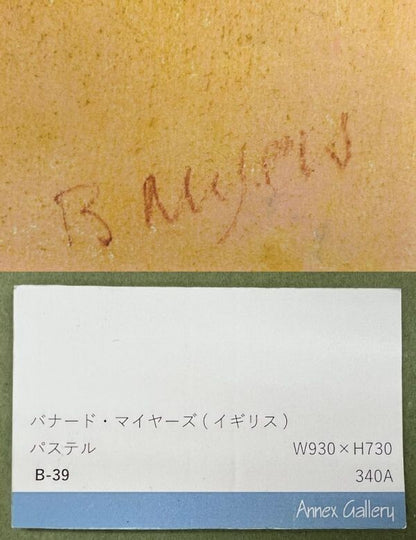 B Myers
バナード・マイヤーズ(イギリス)
パステル W930×H730
B-39 340A
Annex Gallery